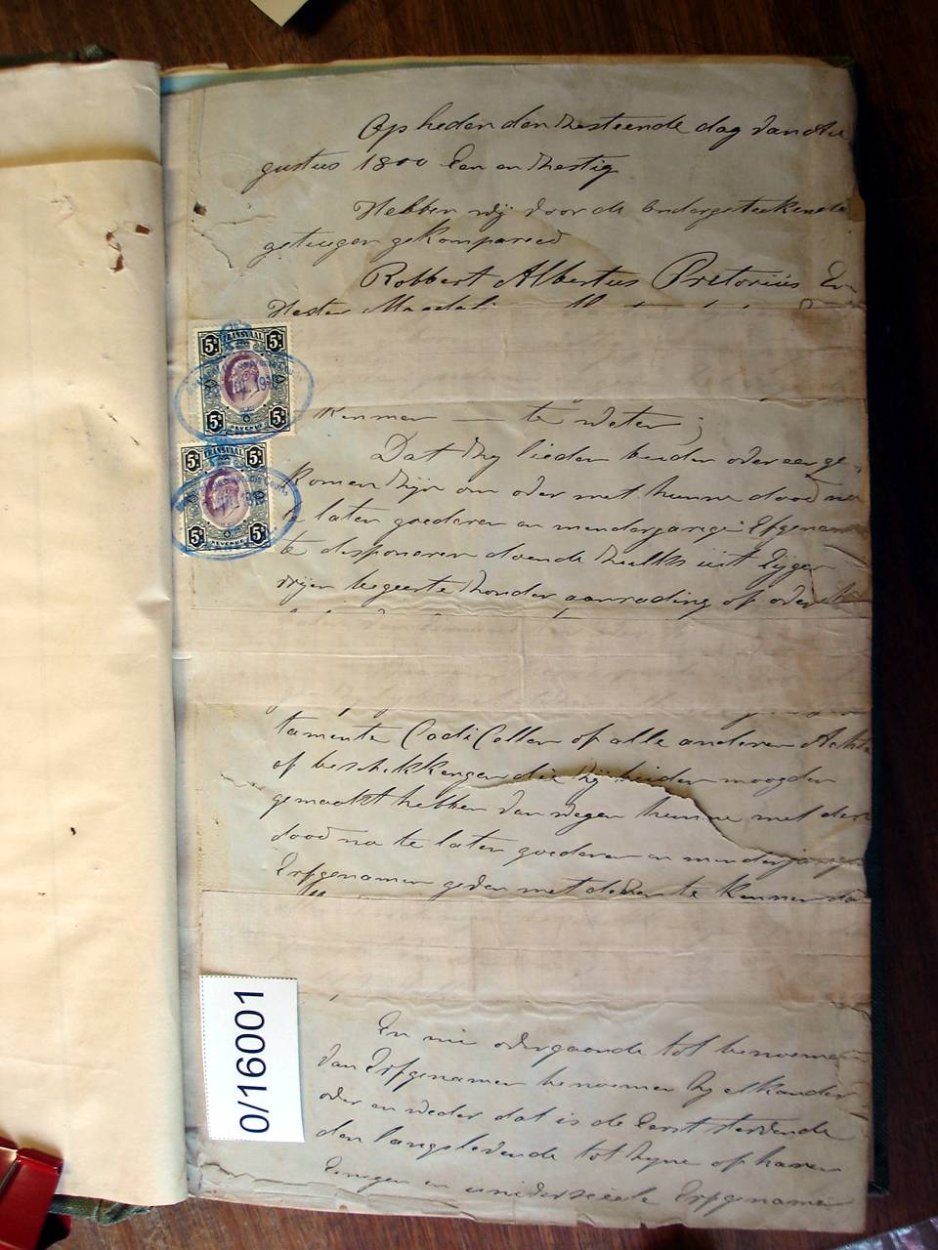 Op heden den Zesteende dag van Au
gustus 1800 Een en Zestig
Hebben wij voor de ondergeteekende
getuigen gekompareed
Robbert Albertus Pretorius En
Hester
TRANSVAAL
5s 5s
5s 5s
REVENUE
TRANSVAAL
5s 5s
5s 5s
REVENUE
Kennen — te weten;
Dat Zy lieden beiden overeenge
komen Zijn om over met hunne dood na
te laten goederen en minderjarige Erfgenam
te disponeren doende Zulks uit Eijgen
vrijen begeerte Zonder aanrading of
tamente CodiCellen of alle anderen Ackte
of beschikkengen die Zij leiden moogden
gemaakt hebben van wegen hunne met der
dood na te laten goederen en minderjarigen
Erfgenamen geven met deser te Kennen da
En nu overgaande tot benoemen
van Erfgenamen benoemen Zy elkander
over en weder dat is de Eerst stervende
den langslevende tot Zyne of haren
Eenigen en universeele Erfgenamen
0/16001